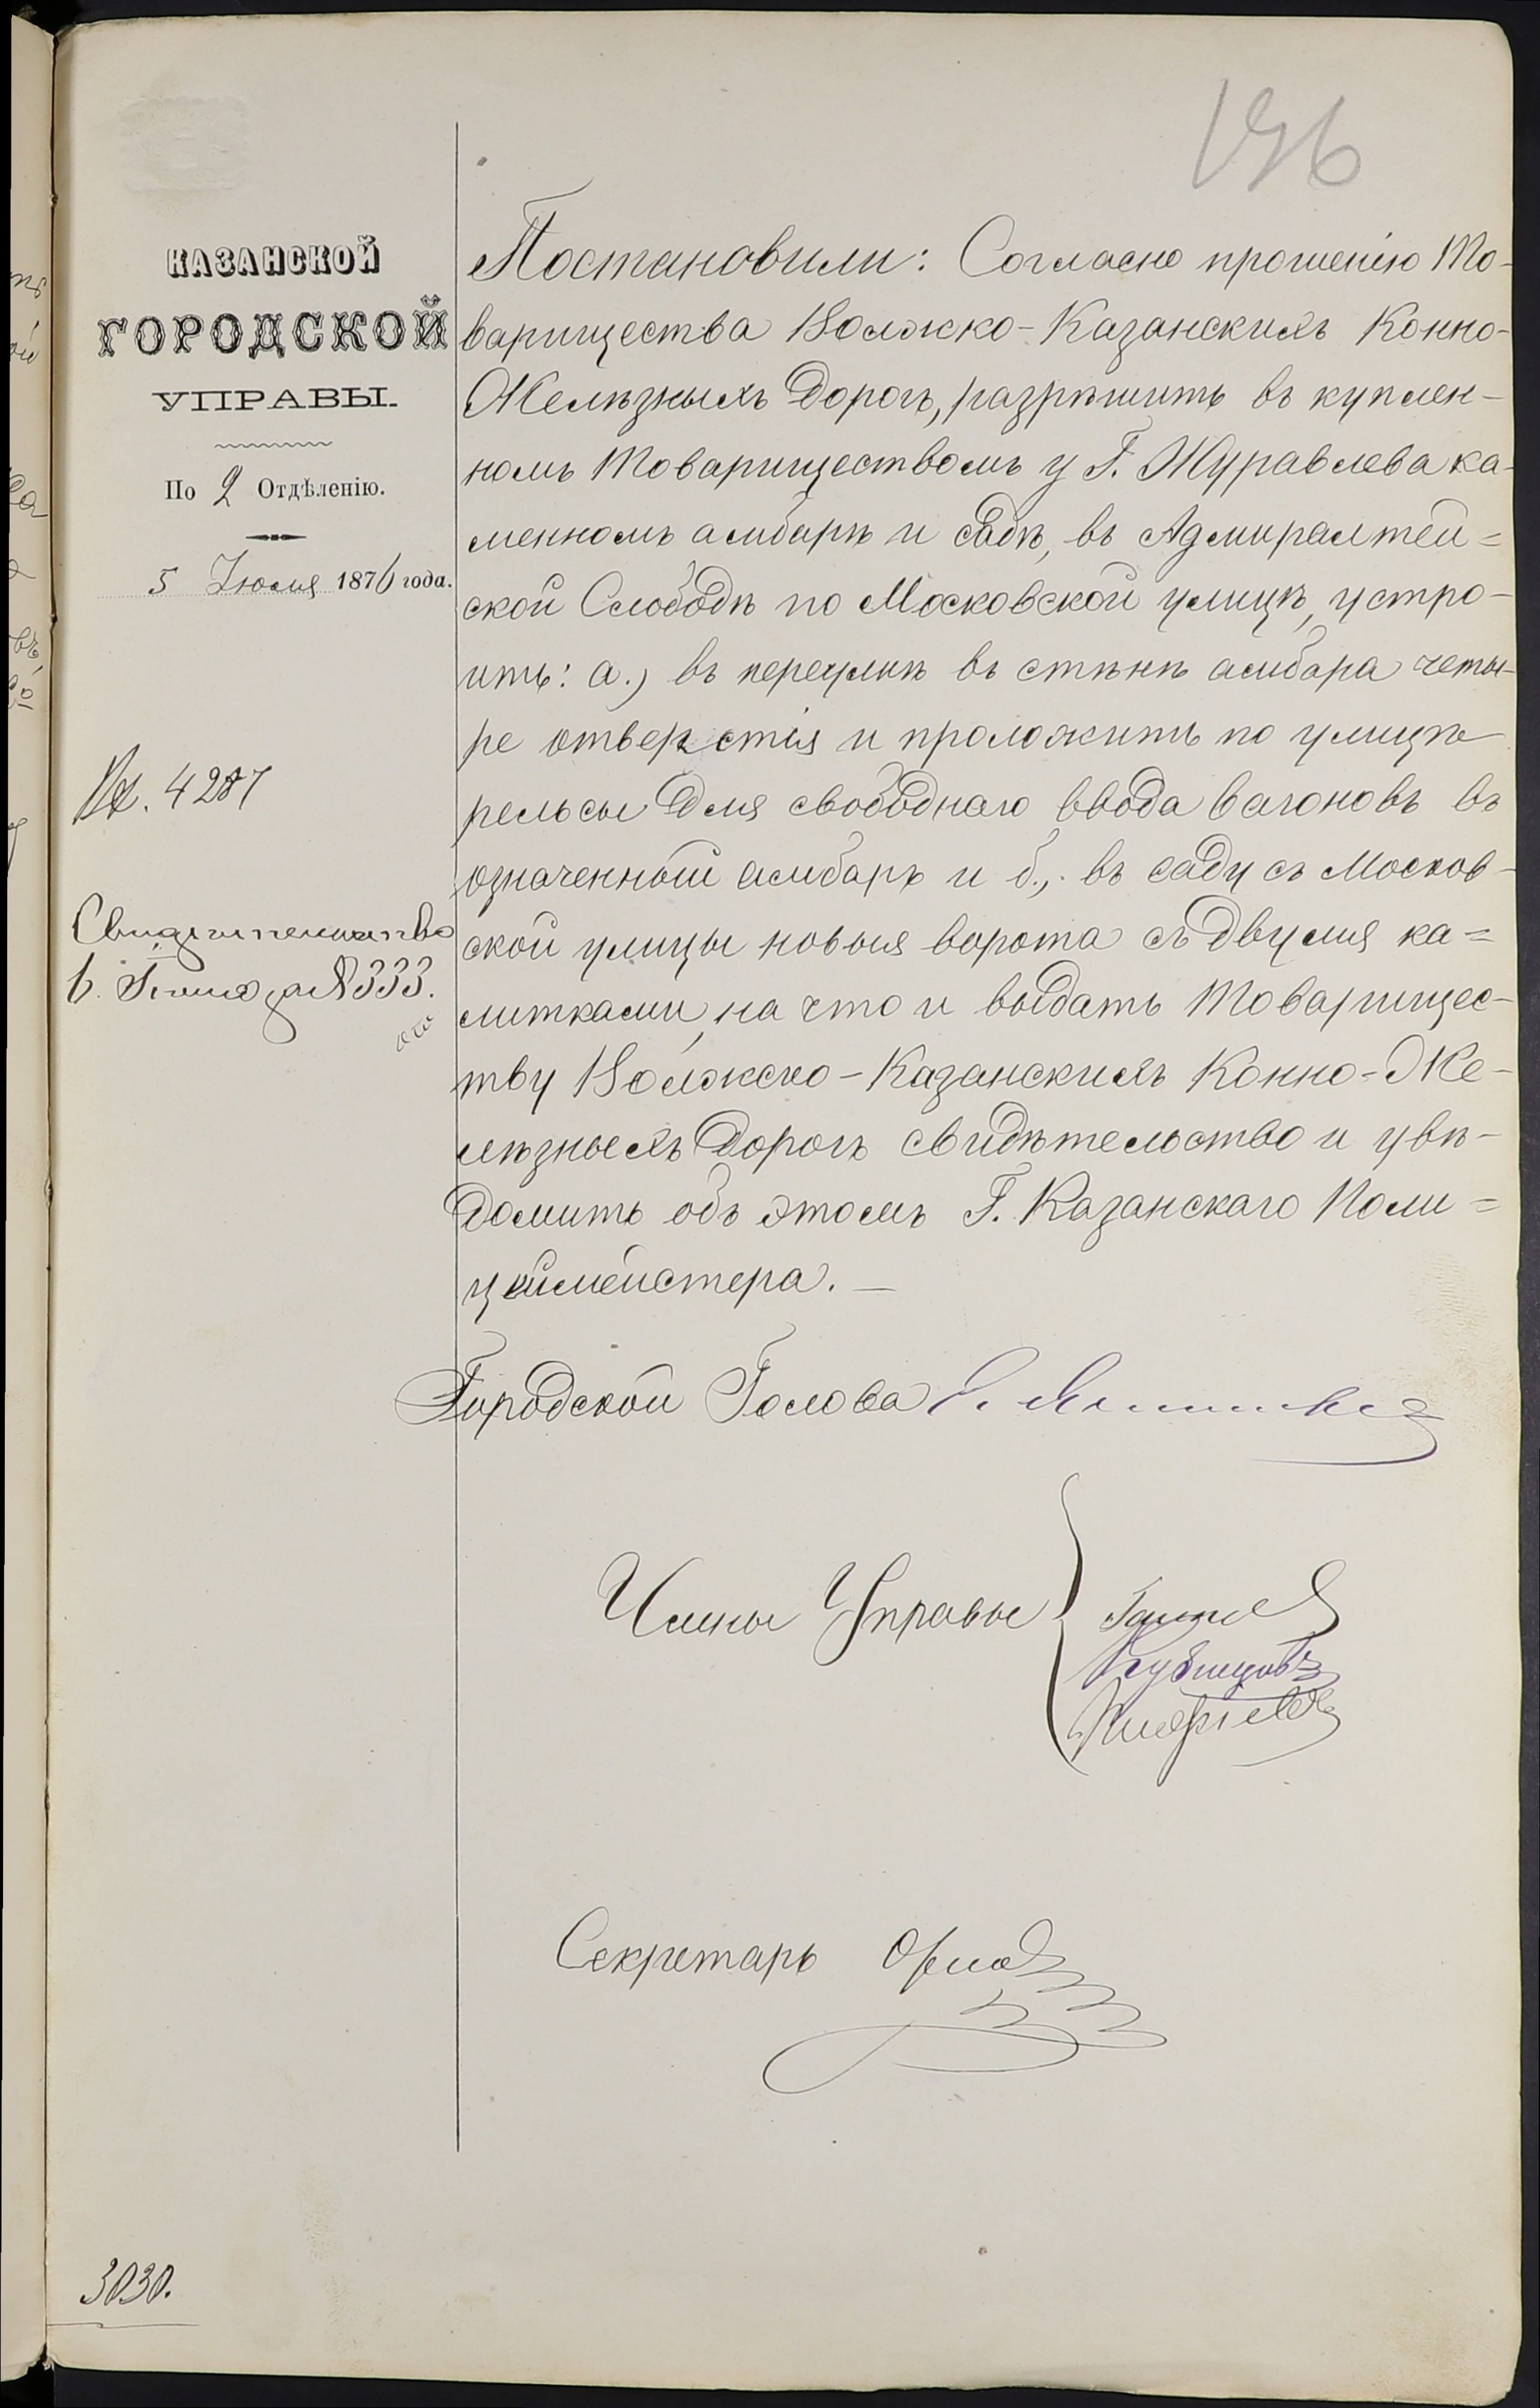 196
КАЗАНСКОЙ
ГОРОДСКОЙ
УПРАВЫ.
По 2 Отдѣленію.
5 Іюля 1876 года.
Вх. 4287
Свидѣтельство
6. Іюля за № 333.
Постановили: Согласно прошенію То-
варищества Волжко-Казанскихъ Конно-
Желѣзныхъ Дорогъ, разрѣшить въ куплен-
номъ Товариществомъ у Г. Журавлева ка-
менномъ амбарѣ и садѣ, въ Адмиралтей=
ской Слободѣ по Московской улицѣ, устро-
ить: а.) въ переулкѣ въ стѣнѣ амбара четы-
ре отверстія и проложить по улицѣ
рельсы для свободнаго ввода вагоновъ въ
означенный амбаръ и б., въ саду съ Москов-
ской улицы новыя ворота съ двумя ка=
литками, на что и выдать Товарищес-
тву Волжско-Казанскихъ Конно-Же-
лѣзныхъ Дорогъ свидѣтельство и увѣ-
домить объ этомъ Г. Казанскаго Поли=
цеймейстера. —
Городской Голова
Члены Управы
Кубицовъ
Секретарь Орлов
3030.